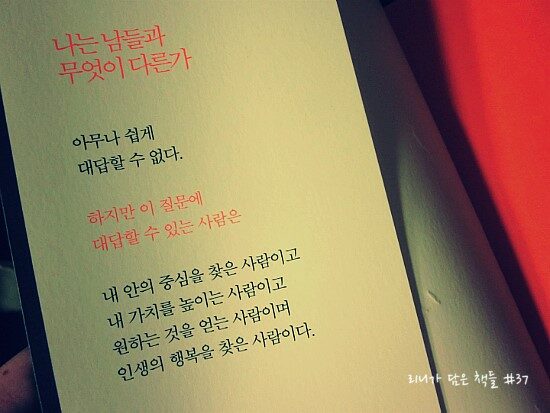 나는 남들과
무엇이 다른가
아무나 쉽게
대답할 수 없다.
하지만 이 질문에
대답할 수 있는 사람은
내 안의 중심을 찾은 사람이고
내 가치를 높이는 사람이고
원하는 것을 얻는 사람이며
인생의 행복을 찾은 사람이다.
리니가 담은 책들 #37